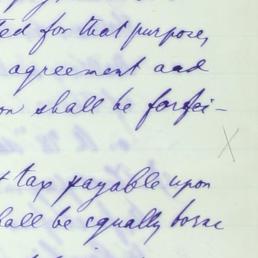 ted for that purpose,
agreement and
on shall be forfei-
t tax payable upon
hall be equally borne